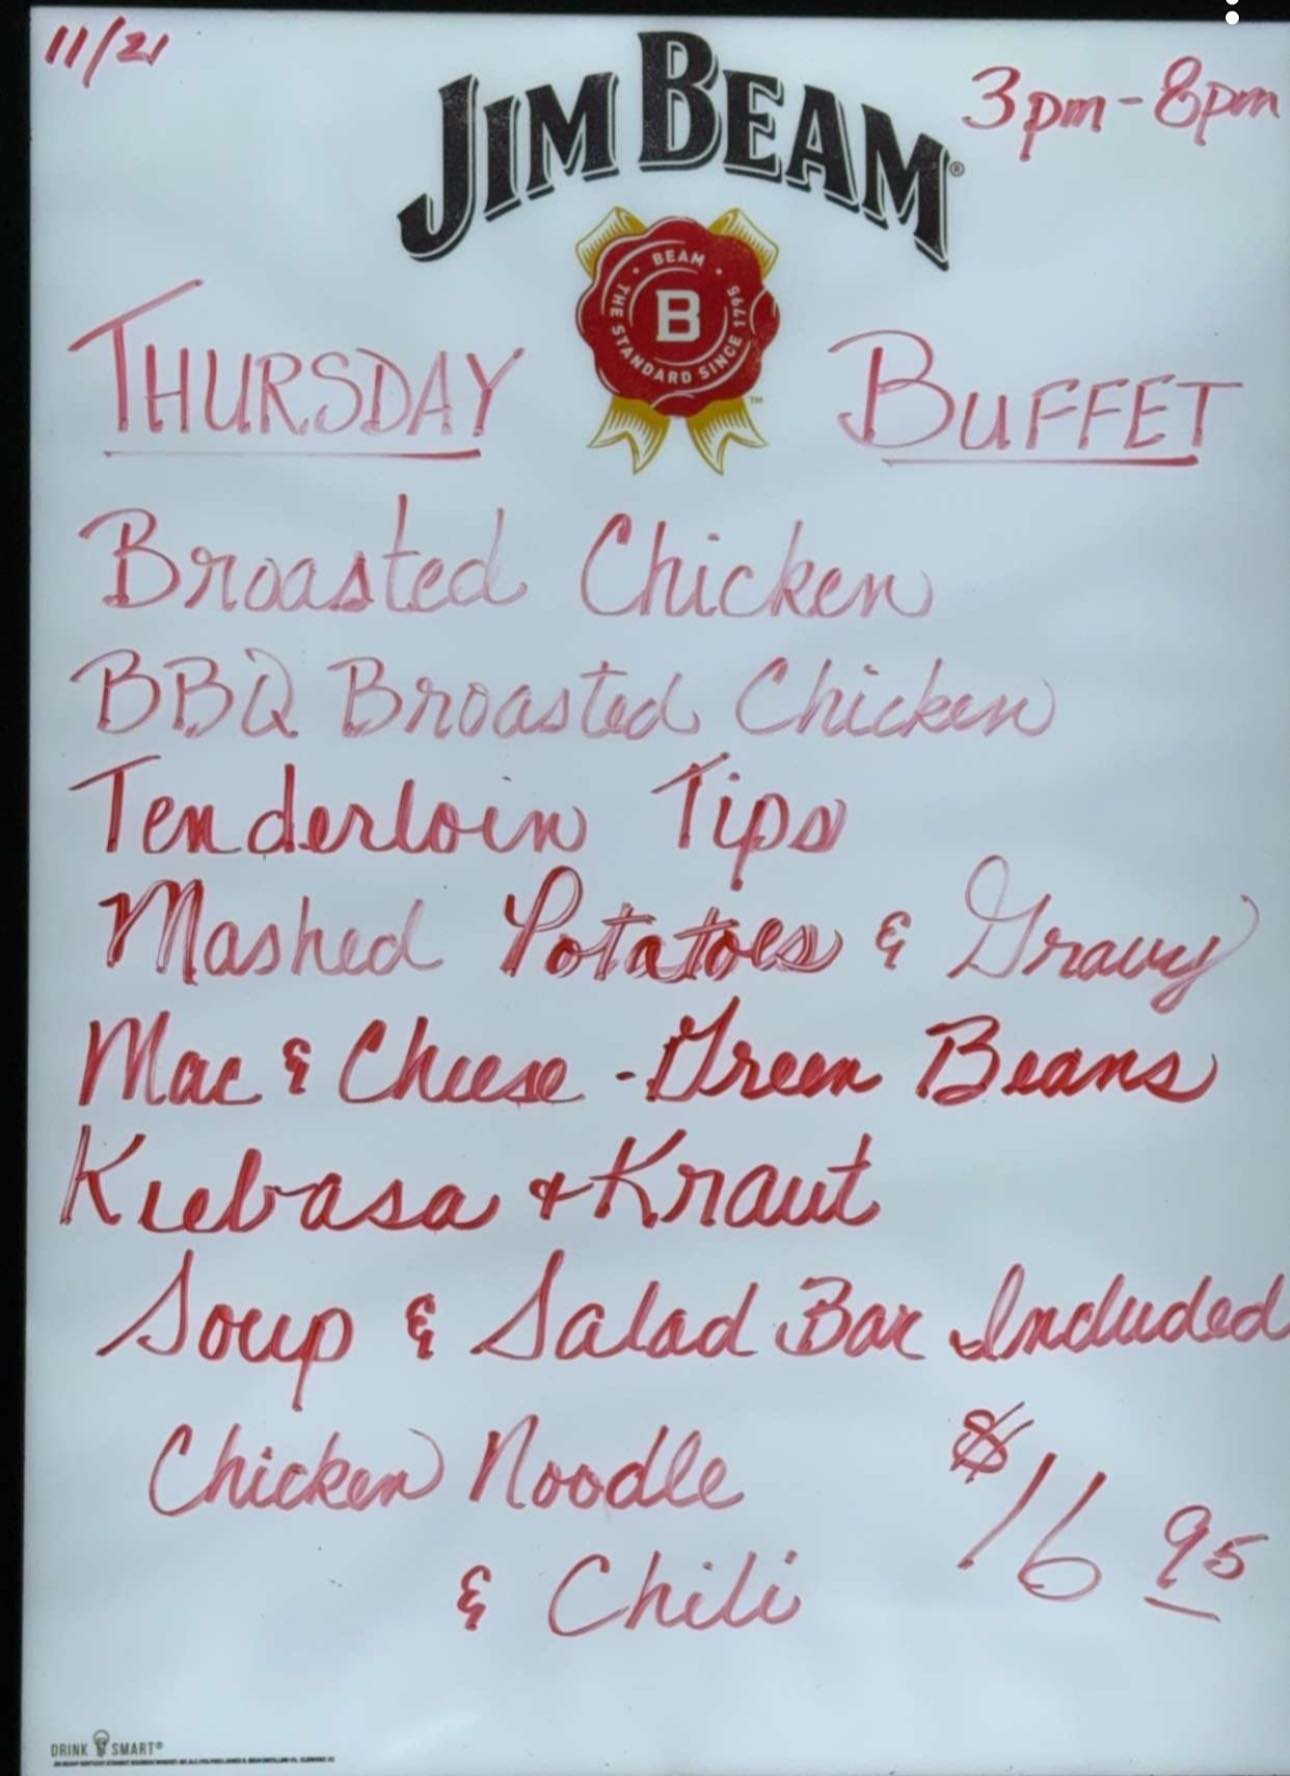 11/21
3pm-8pm
JIM BEAM®
BEAM
B
THE STANDARD SINCE 1795
™
THURSDAY BUFFET
Broasted Chicken
BBQ Broasted Chicken
Tenderloin Tips
Mashed Potatoes & Gravy
Mac & Cheese - Green Beans
Kielbasa + Kraut
Soup & Salad Bar Included
Chicken Noodle
& Chili
$16 95
DRINK SMART®